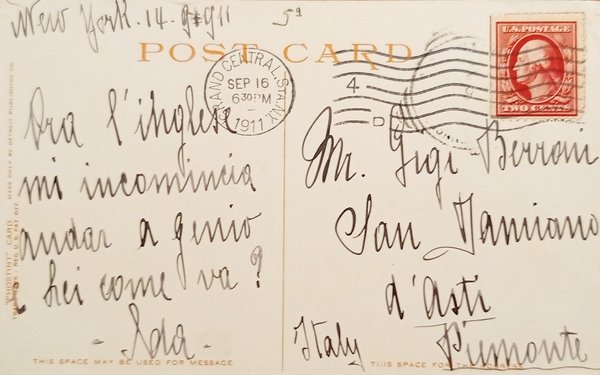 New York. 14. 9. 911
5ª
POST CARD
GRAND CENTRAL STA. N.Y.
SEP 16
6 30 PM
1911
4
U.S. POSTAGE
TWO CENTS
Ora l'inglese
mi incomincia
andar a genio
Lei come va?
- Ada -
Mr. Gigi Berrani
San Damiano
d'Asti
Italy Piemonte
"PHOSTINT" CARD
MADE ONLY BY DETROIT PUBLISHING CO.
THIS SPACE MAY BE USED FOR MESSAGE.
THIS SPACE FOR THE ADDRESS